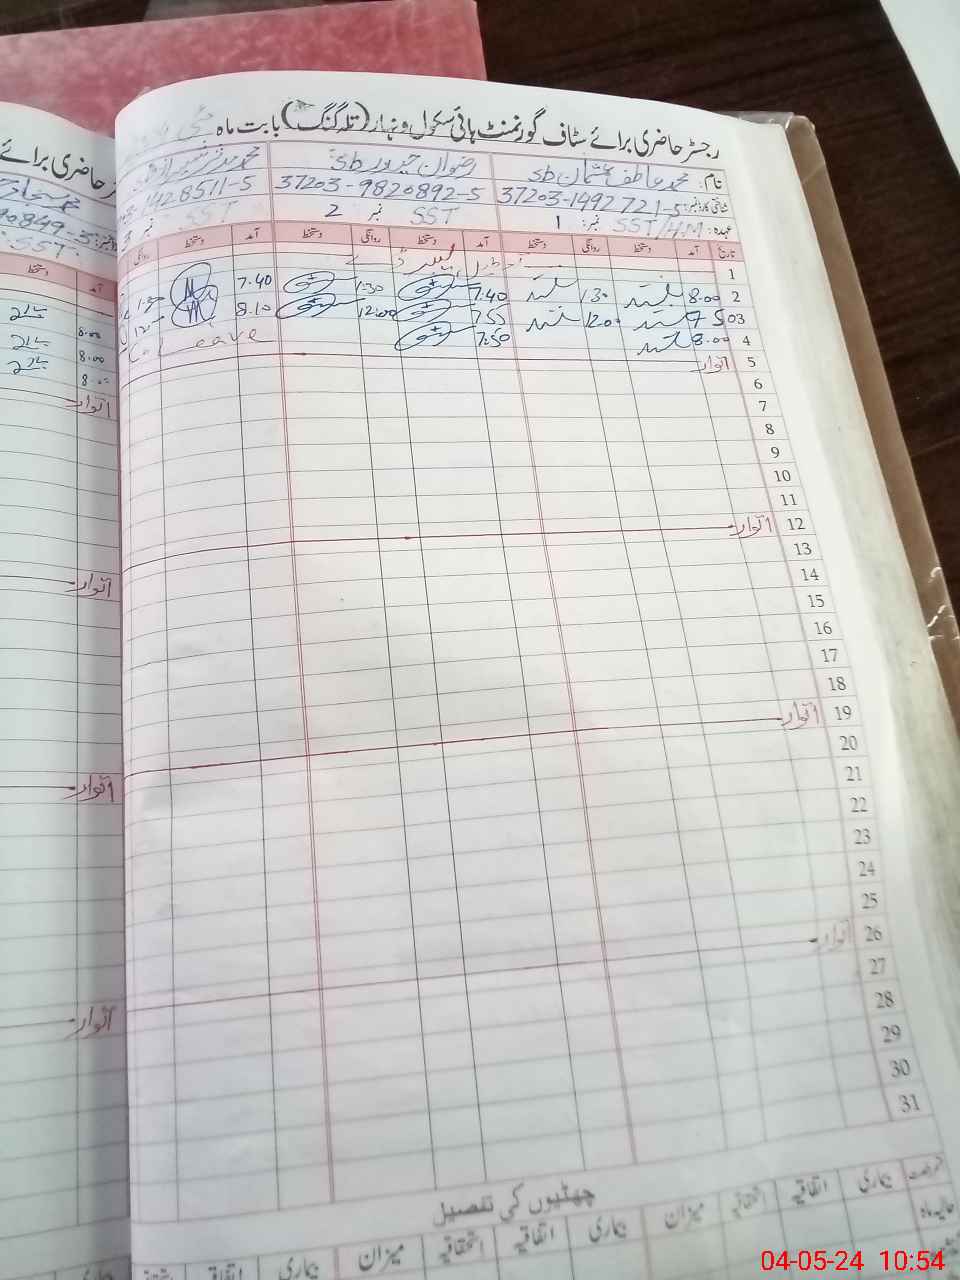 رجسٹر حاضری برائے سٹاف گورنمنٹ ہائی سکول ونہار (تلہ گنگ) بابت ماہ مئی
نام: محمد عاطف عثمان sb رضوان حیدر sb محمد
شناختی کارڈ نمبر: 37203-1492721-5 37203-9820892-5 1428511-5
عہدہ: SST/HM نمبر: 1 SST نمبر 2 SST نمبر 3
تاریخ آمد دستخط روانگی دستخط آمد دستخط روانگی دستخط آمد دستخط روانگی
1
2 8.00 1.30 7:40 1:30 7.40
3 7 50 12.00 7.55 12:00 8.10
4 8.00 7:50 Leave
5 اتوار
6
7
8
9
10
11
12 اتوار
13
14
15
16
17
18
19 اتوار
20
21
22
23
24
25
26 اتوار
27
28
29
30
31
چھٹیوں کی تفصیل
بیماری اتفاقیہ استحقاقیہ میزان بیماری اتفاقیہ استحقاقیہ میزان بیماری اتفاقیہ
حالیہ ماہ
حاضری برائے
90849-5
SST
آمد دستخط
8.00
8.00
8.00
اتوار
اتوار
اتوار
اتوار
04-05-24 10:54